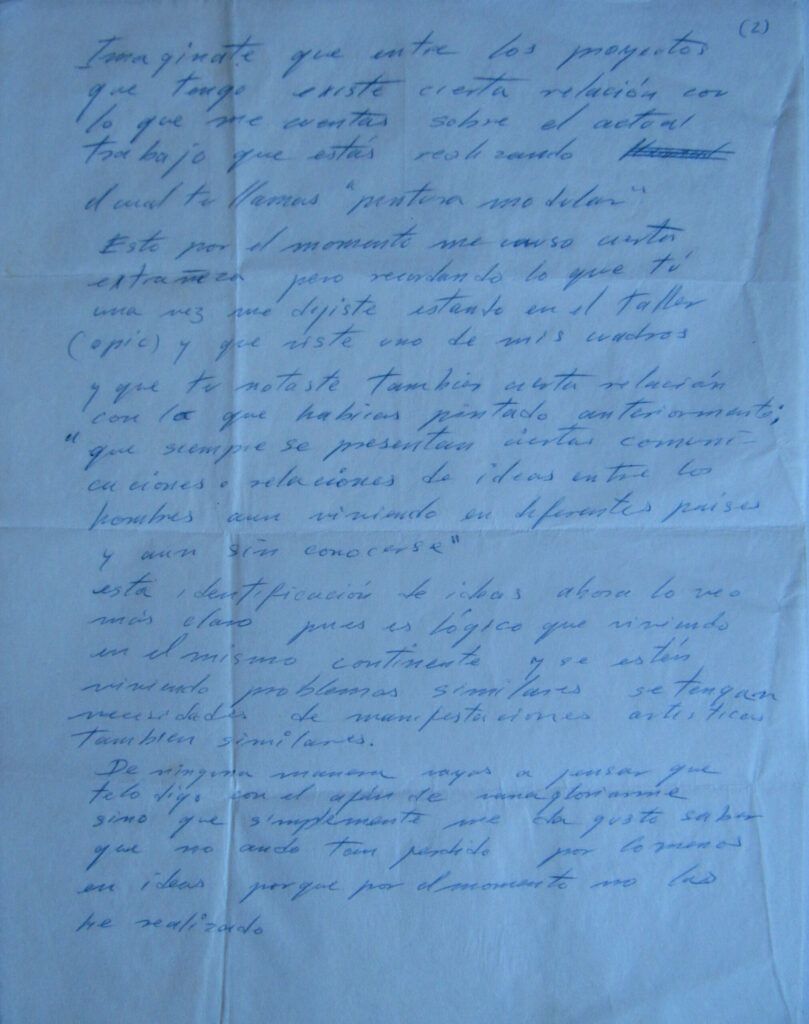 (2)
Imaginate que entre los proyectos
que tengo existe cierta relación con
lo que me cuentas sobre el actual
trabajo que estás realizando
el cual tu llamas "pintura modular"
Esto por el momento me causo cierta
extrañeza pero recordando lo que tú
una vez me dijiste estando en el taller
(opic) y que viste uno de mis cuadros
y que tu notaste tambien cierta relación
con lo que habias pintado anteriormente;
"que siempre se presentan ciertas comuni-
caciones o relaciones de ideas entre los
hombres aun viviendo en diferentes paises
y aun sin conocerse"
esta identificación de ideas ahora lo veo
más claro pues es lógico que viviendo
en el mismo continente y se estén
viviendo problemas similares se tengan
necesidades de manifestaciones artisticas
tambien similares.
De ninguna manera vayas a pensar que
te lo digo con el afán de vanagloriarme
sino que simplemente me da gusto saber
que no ando tan perdido por lo menos
en ideas porque por el momento no las
he realizado